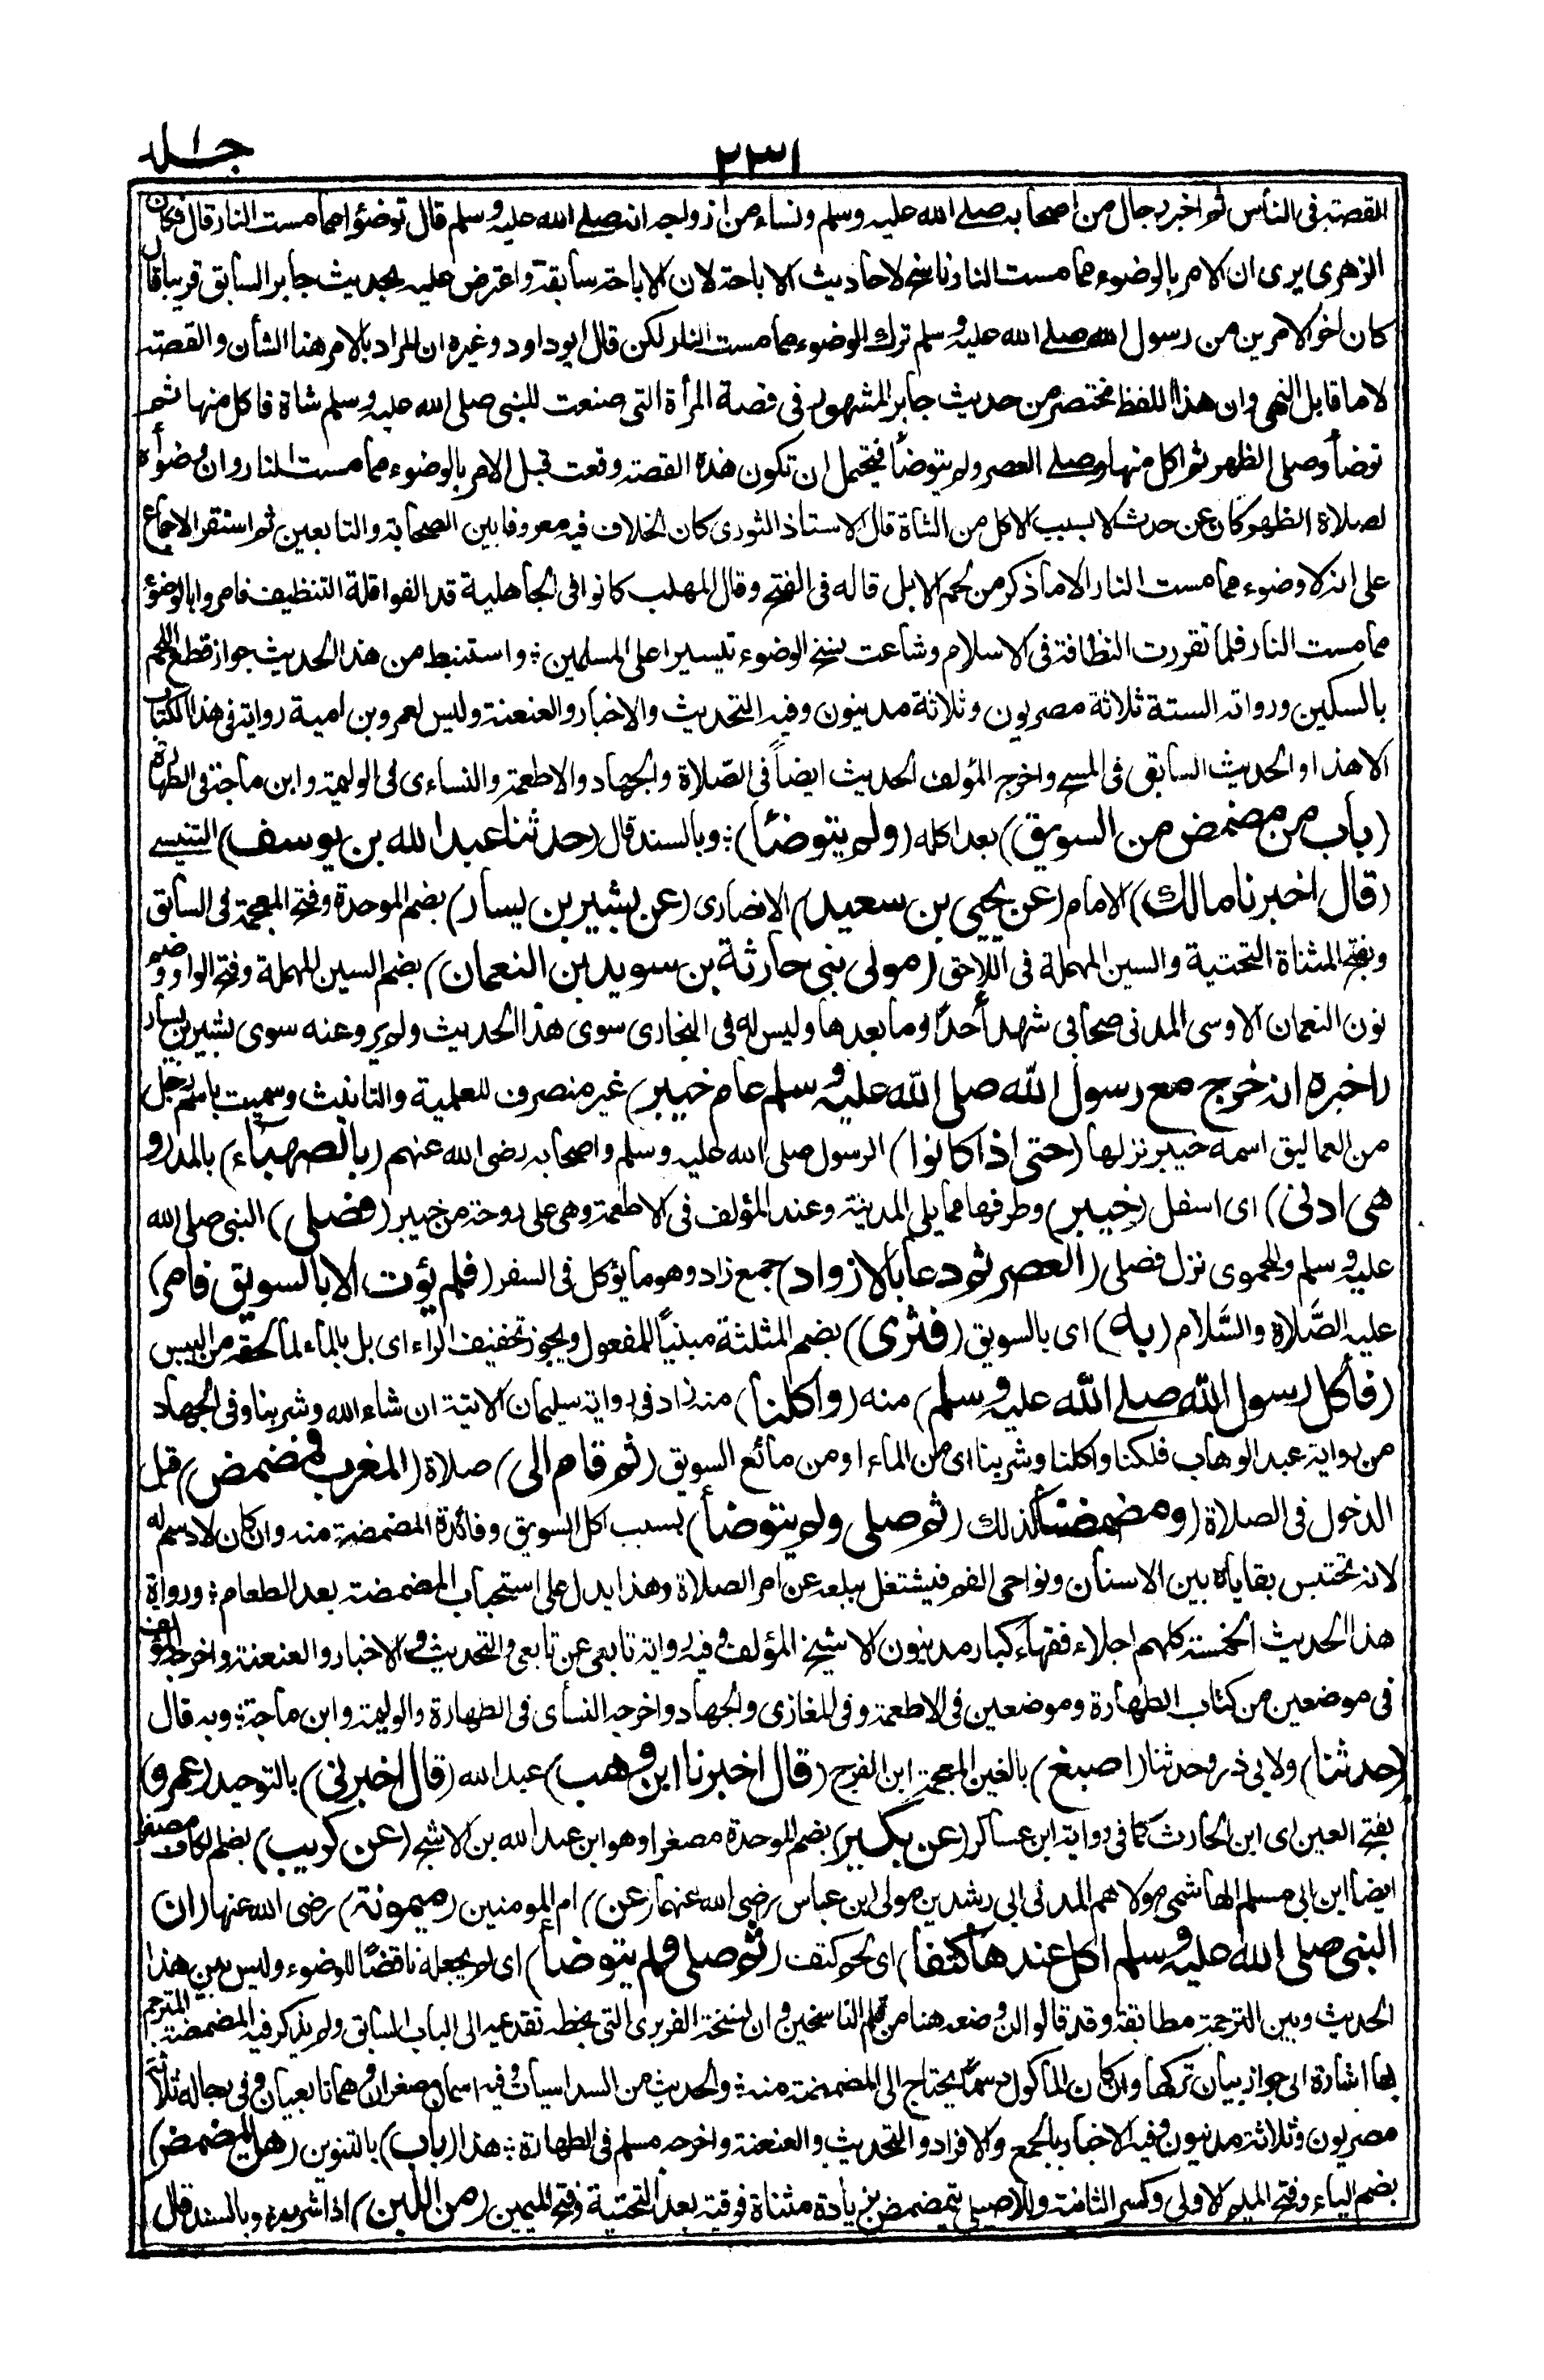 ٢٣١
جلد ١
القصة فى الناس ثم اخبر رجال من اصحابه صلى الله عليه وسلم ونساء من ازواجه انه صلى الله عليه وسلم قال توضؤا مما مست النار قال فكان
الزهرى يرى ان الامر بالوضوء مما مست النار ناسخ لاحاديث الاباحة لان الاباحة سابقة واعترض عليه بحديث جابر السابق قريبا قال
كان اخر الامرين من رسول الله صلى الله عليه وسلم ترك الوضوء مما مست النار لكن قال ابو داود وغيره ان المراد بالامر هنا الشأن والقصة
لا ما قابل النهى وان هذا اللفظ مختصر من حديث جابر المشهور فى قصة المرأة التى صنعت للنبى صلى الله عليه وسلم شاة فاكل منها ثم
توضأ وصلى الظهر ثم اكل منها وصلى العصر ولم يتوضأ فيحتمل ان تكون هذه القصة وقعت قبل الامر بالوضوء مما مست النار وان وضوأه
لصلاة الظهر كان عن حدث لا بسبب الاكل من الشاة قال الاستاذ الثورى كان الخلاف فيه معروفا بين الصحابة والتابعين ثم استقر الاجماع
على انه لا وضوء مما مست النار الا ما ذكر من لحم الابل قاله فى الفتح وقال المهلب كانوا فى الجاهلية قد الفوا قلة التنظيف فامروا بالوضوء
مما مست النار فلما تقررت النظافة فى الاسلام وشاعت نسخ الوضوء تيسيرا على المسلمين ؛ واستنبط من هذا الحديث جواز قطع اللحم
بالسكين ورواته الستة ثلاثة مصريون وثلاثة مدينون وفيه التحديث والاخبار والعنعنة وليس لعمرو بن امية رواية فى هذا الكتاب
الا هذا والحديث السابق فى المسح واخرج المؤلف الحديث ايضاً فى الصلاة والجهاد والاطعمة والنساءى فى الوليمة وابن ماجة فى الطهارة
(باب من مضمض من السويق) بعد اكله (ولم يتوضأ) ؛ وبالسند قال (حدثنا عبد الله بن يوسف) التنيسى
(قال اخبرنا مالك) الامام (عن يحيى بن سعيد) الانصارى (عن بشير بن يسار) بضم الموحدة وفتح المعجمة فى السابق
وبفتح المثناة التحتية والسين المهملة فى اللاحق (مولى بنى حارثة بن سويد بن النعمان) بضم السين المهملة وفتح الواو وضم
نون النعمان الاوسى المدنى صحابى شهد أحداً وما بعدها وليس له فى البخارى سوى هذا الحديث ولم يرو عنه سوى بشير بن يسار
(اخبره انه خرج مع رسول الله صلى الله عليه وسلم عام خيبر) غير منصرف للعلمية والتانيث وسميت باسم رجل
من العماليق اسمه خيبر نزلها (حتى اذا كانوا) الرسول صلى الله عليه وسلم واصحابه رضى الله عنهم (بالصهباء) بالمد (و
هى ادنى) اى اسفل (خيبر) وطرفها مما يلى المدينة وعند المؤلف فى الاطعمة وهى على روحة من خيبر (فصلى) النبى صلى الله
عليه وسلم وللحموى نزل فصلى (العصر ثم دعا بالازواد) جمع زاد وهو ما يؤكل فى السفر (فلم يؤت الا بالسويق فامر)
عليه الصَّلاة والسَّلام (به) اى بالسويق (فثرى) بضم المثلثة مبنياً للمفعول ويجوز تخفيف الراء اى بل بالماء لما لحقه من اليبس
(فأكل رسول الله صلى الله عليه وسلم) منه (واكلنا) منه زاد فى رواية سليمان الاتية ان شاء الله وشربنا وفى الجهاد
من رواية عبد الوهاب فلكنا واكلنا وشربنا اى من الماء او من مائع السويق (ثم قام الى) صلاة (المغرب فمضمض) قبل
الدخول فى الصلاة (ومضمضنا) كذلك (ثم صلى ولم يتوضأ) بسبب اكل السويق وفائدة المضمضة منه وان كان لا دسم له
لانه تحتبس بقاياه بين الاسنان ونواحى الفم فيشتغل ببلعه عن امر الصلاة وهذا يدل على استحباب المضمضة بعد الطعام ؛ ورواة
هذا الحديث الخمسة كلهم اجلاء فقهاء كبار مدنيون الا شيخ المؤلف وفيه رواية تابعى عن تابعى والتحديث والاخبار والعنعنة واخرجه المؤلف
فى موضعين من كتاب الطهارة وموضعين فى الاطعمة وفى المغازى والجهاد واخرجه النسأى فى الطهارة والوليمة وابن ماجة ؛ وبه قال
(حدثنا) ولابى ذر وحدثنا (اصبغ) بالغين المعجمة ابن الفرج (قال اخبرنا ابن وهب) عبد الله (قال اخبرنى) بالتوحيد (عمرو)
بفتح العين اى ابن الحارث كما فى رواية ابن عساكر (عن بكير) بضم الموحدة مصغرا وهو ابن عبد الله بن الاشج (عن كريب) بضم الكاف مصغرا
ايضا ابن ابى مسلم الهاشمى مولاهم المدنى ابى رشدين مولى ابن عباس رضى الله عنهما (عن) ام المومنين (ميمونة) رضى الله عنها (ان
النبى صلى الله عليه وسلم اكل عندها كتفا) اى لحم كتف (ثم صلى ولم يتوضأ) اى لم يجعله ناقضاً للوضوء وليس بين هذا
الحديث وبين الترجمة مطابقة وقد قالوا ان وضعه هنا من قلم الناسخين وان نسخة الفربرى التى بخطه تقديمه الى الباب السابق ولم يذكر فيه المضمضة المترجم
بها اشارة الى جواز بيان تركها وان كان المأكول دسماً يحتاج الى المضمضة منه ؛ والحديث من السداسيات وفيه اسمان مصغران وهما تابعيان وفى رجاله ثلاثة
مصريون وثلاثة مدنيون وفيه الاخبار بالجمع والافراد والتحديث والعنعنة واخرجه مسلم فى الطهارة ؛ هذا (باب) بالتنوين (هل يمضمض)
بضم الياء وفتح الميم الاولى وكسر الثانية وللاصيلى يتمضمض بزيادة مثناة فوقية بعد التحتية وفتح الميمين (من اللبن) اذا شربه ؛ وبالسند قال